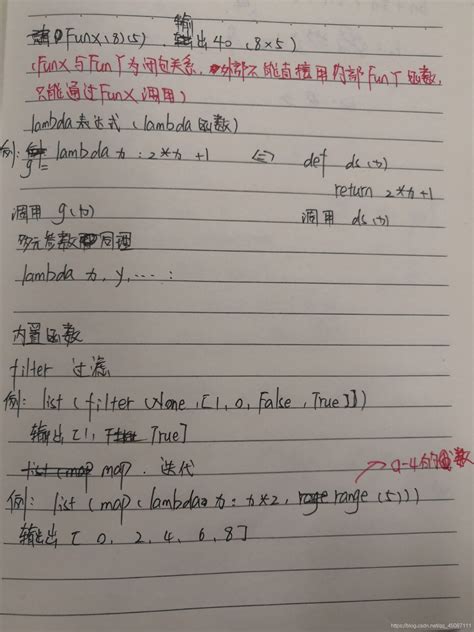 FunX(8)(5) 输出40 (8×5)
(FunX与FunY为闭包关系,外部不能直接用内部FunY函数,
只能通过FunX调用)
lambda表达式(lambda函数)
例: g = lambda x : 2*x+1 <=> def ds(x)
return 2*x+1
调用 g(x) 调用 ds(x)
多元参数同理
lambda x, y, ... :
内置函数
filter 过滤
例: list (filter (None, [1, 0, False, True]))
输出 [1, True]
map. 迭代
0-4的函数
例: list (map (lambda x: x*2, range(5)))
输出 [ 0, 2, 4, 6, 8]